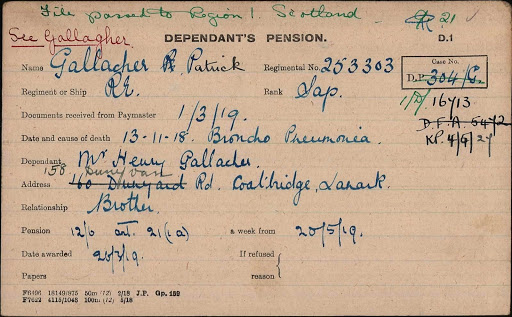 File passed to Region 1. Scotland. 21
See Gallagher.
DEPENDANT'S PENSION. D.1
Name Gallacher Patrick Regimental No. 253303
Case No.
D.P. 304/G.
Regiment or Ship R.E. Rank Sap.
1/D/ 16713
Documents received from Paymaster 1/3/19.
D.F.A. 6472
Date and cause of death 13-11-18. Broncho Pneumonia.
Dependant Mr Henry Gallacher.
158 Dunyvan
Address 160 Dunyard Rd. Coatbridge, Lanark.
Relationship Brother.
Pension 12/6 art. 21(1a) a week from 20/5/19.
Date awarded 20/7/19. If refused
Papers reason
F6496 18149/875 50m (12) 2/18 J.P. Gp. 159
F7622 4115/1043 100m (12) 5/18